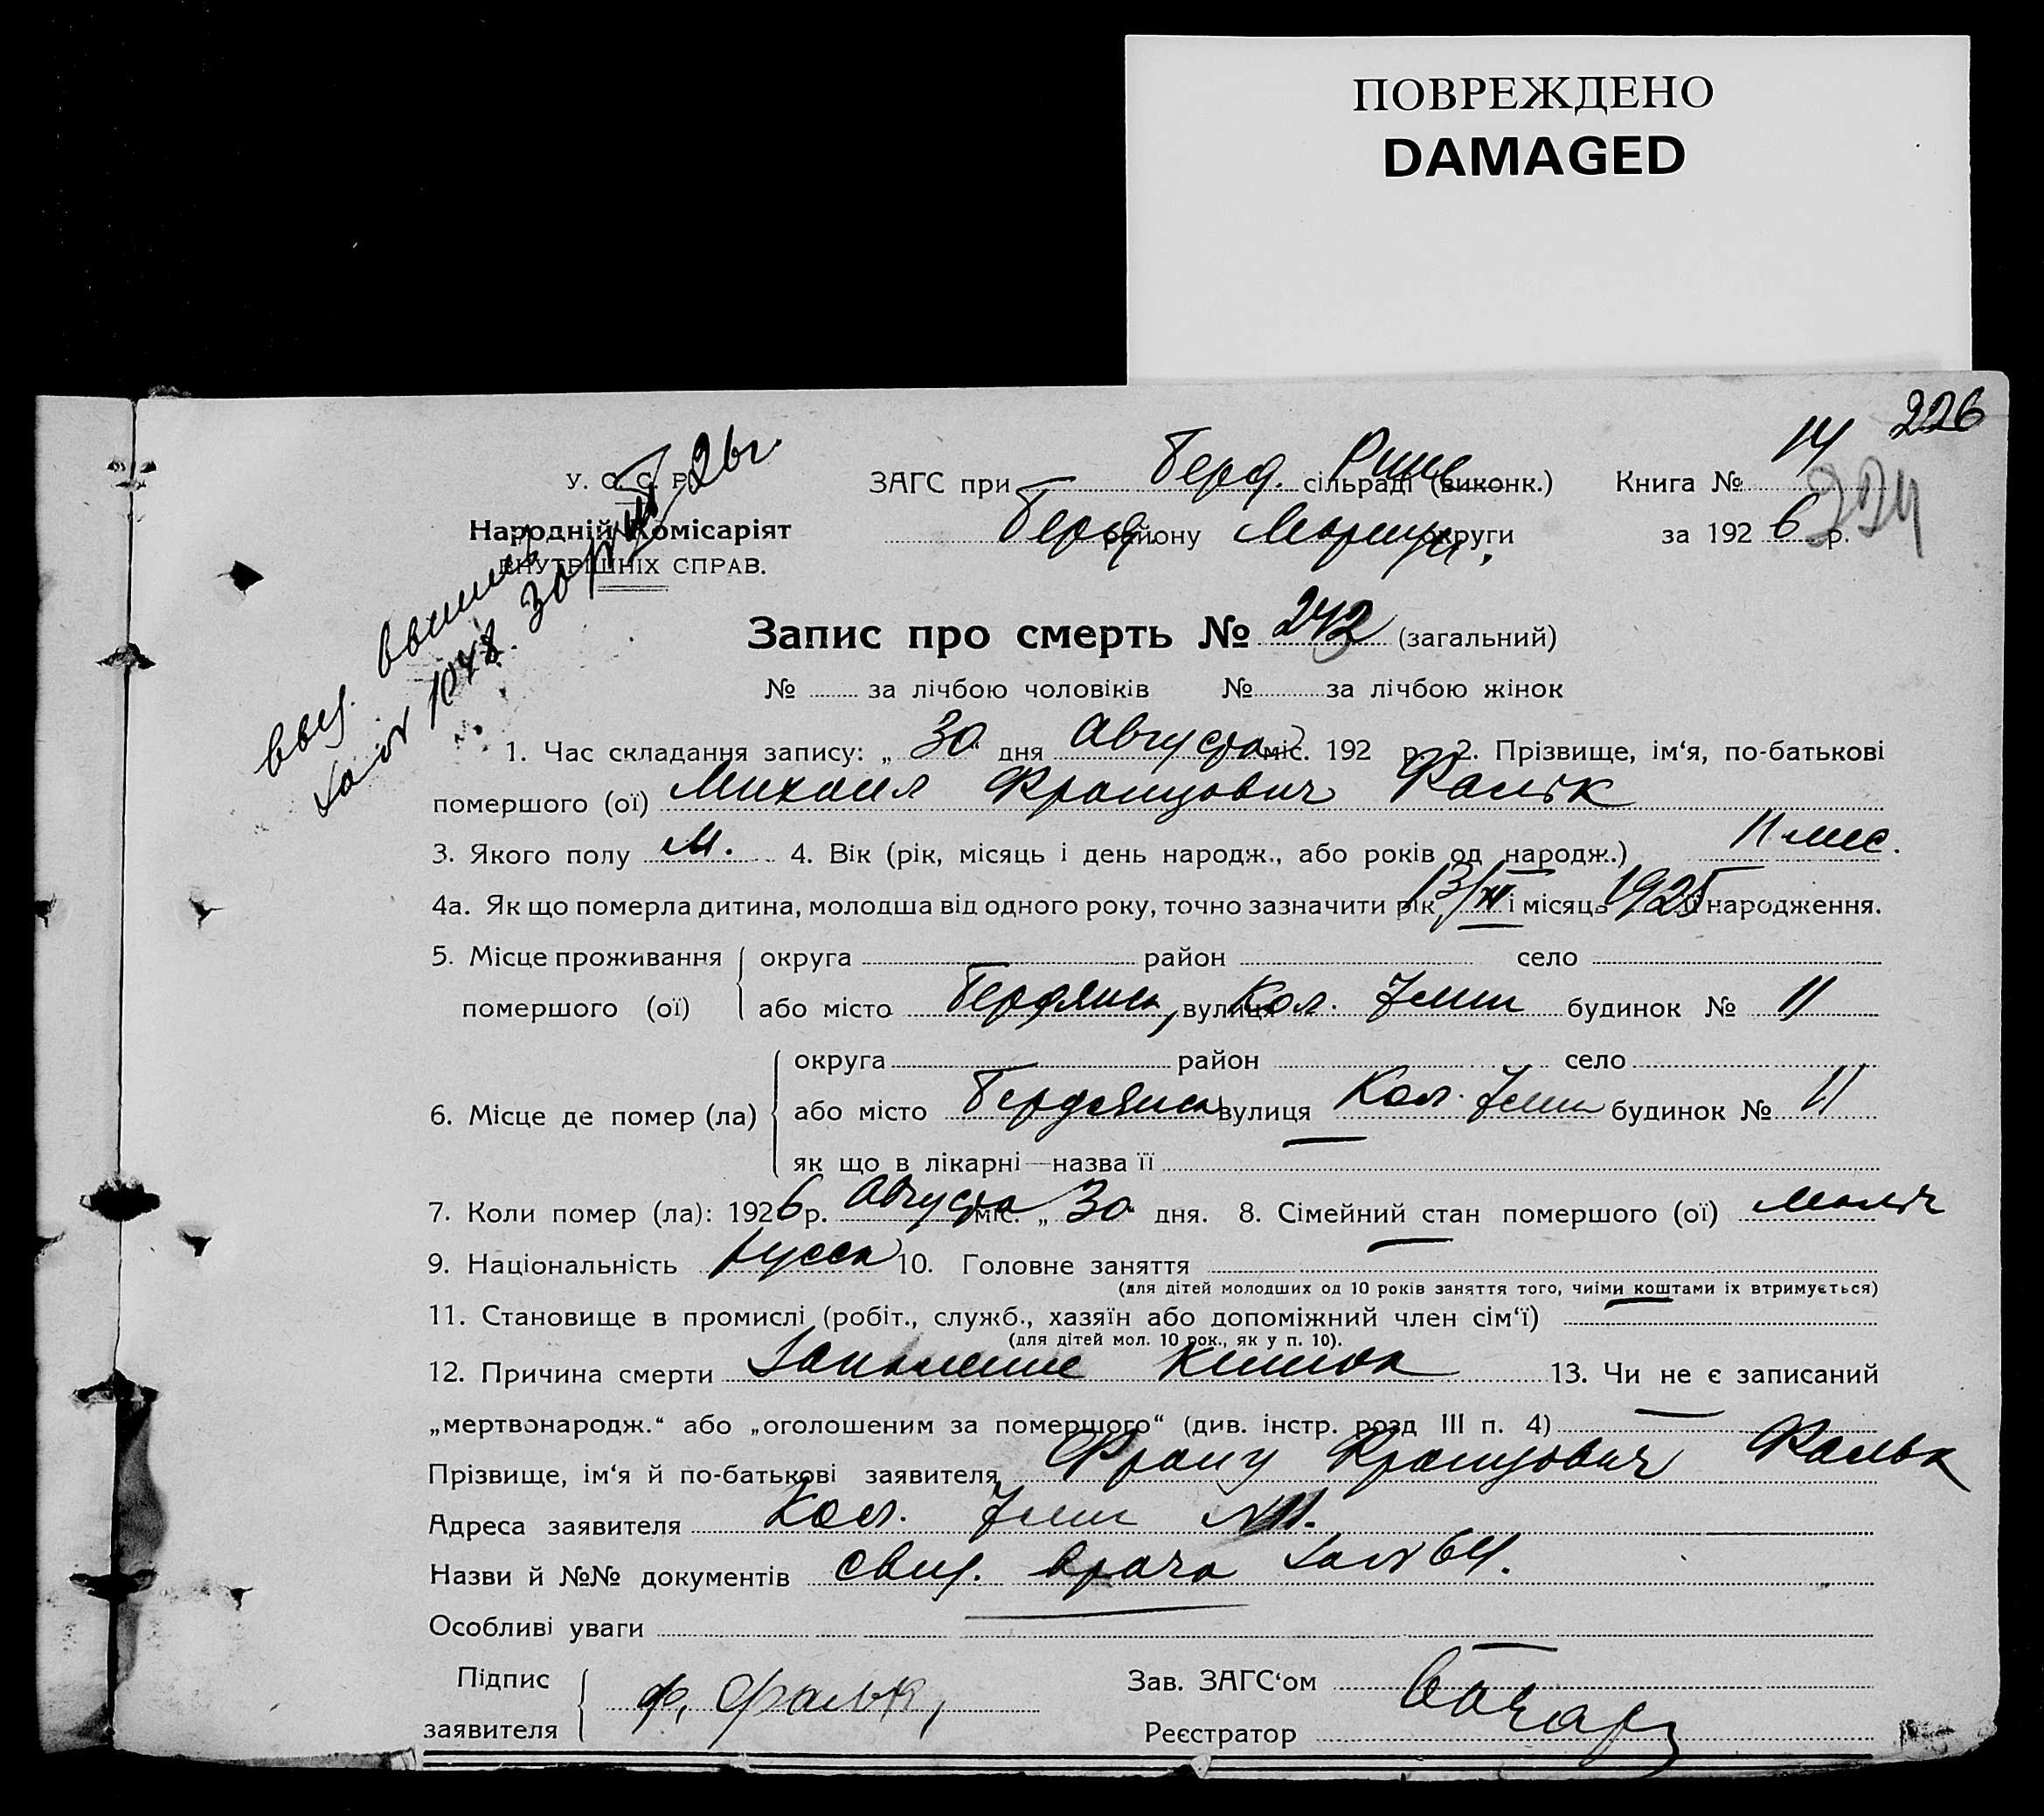 ПОВРЕЖДЕНО
DAMAGED
226
224
У. С. С. Р. ЗАГС при Берд. Рике сільраді (виконк.) Книга № 14
Народній Комісаріят Берд. району Мариуп. округи за 1926 р.
ВНУТРІШНІХ СПРАВ.
выд. выпись
за № 1048. 30/VIII 26г.
Запис про смерть № 242 (загальний)
№ за лічбою чоловіків № за лічбою жінок
1. Час складання запису: „ 30 " дня Августа міс. 192 р. 2. Прізвище, ім‘я, по-батькові
помершого (ої) Михаил Францович Фальк
3. Якого полу м. 4. Вік (рік, місяць і день народж., або років од народж.) 11 мес.
4а. Як що померла дитина, молодша від одного року, точно зазначити рік, 13/XI і місяць 1925 народження.
5. Місце проживання округа район село
помершого (ої) або місто Бердянск, вулиця Кол. будинок № 11
округа район село
6. Місце де помер (ла) або місто Бердянск вулиця Кол. будинок № 11
як що в лікарні—назва її
7. Коли помер (ла): 1926 р. Августа міс. „ 30 " дня. 8. Сімейний стан помершого (ої) мальч
9. Національність русск 10. Головне заняття
(для дітей молодших од 10 років заняття того, чиїми коштами їх втримується)
11. Становище в промислі (робіт., служб., хазяїн або допоміжний член сім‘ї)
(для дітей мол. 10 рок., як у п. 10).
12. Причина смерти кишок 13. Чи не є записаний
„мертвонародж.“ або „оголошеним за помершого“ (див. інстр. розд III п. 4)
Прізвище, ім‘я й по-батькові заявителя Франц Францович Фальк
Адреса заявителя Кол. №11.
Назви й №№ документів свид. врача за № 64.
Особливі уваги
Підпис Зав. ЗАГС‘ом
заявителя Ф. Фальк, Реєстратор